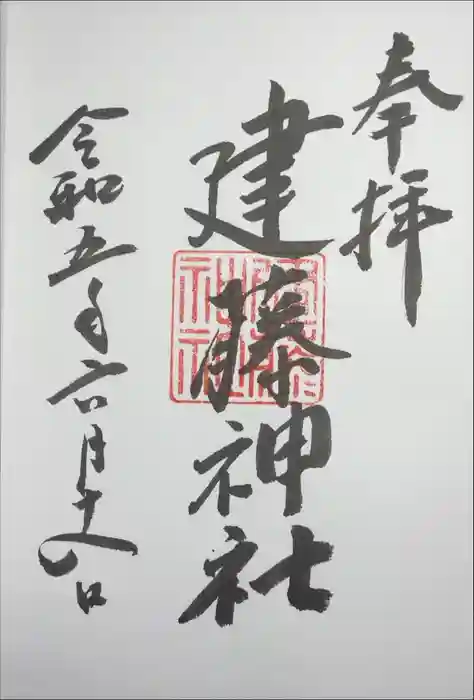 奉拝
建藤神社
令和五年六月十八日